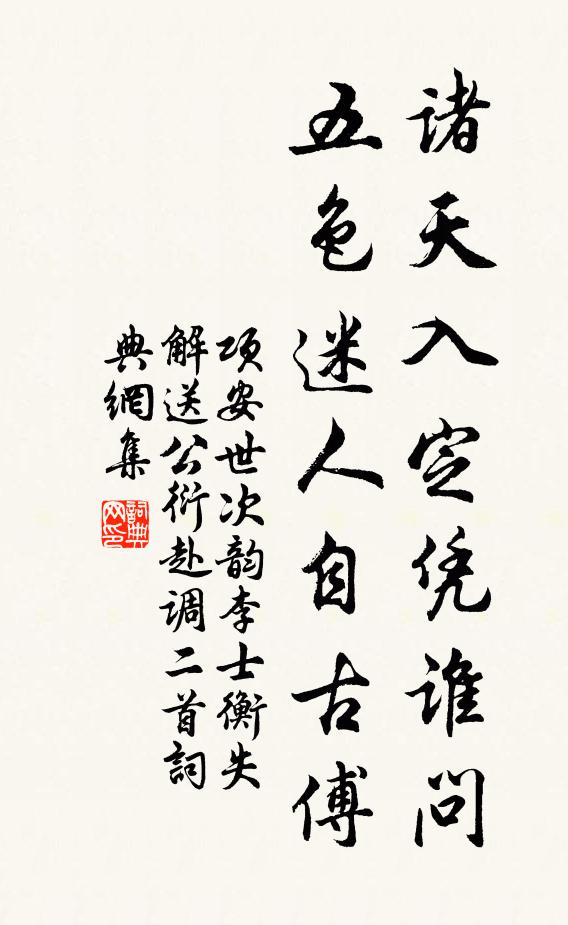 诸天入定凭谁问
五色迷人自古傅
项安世次韵李士衡失
解送公衍赴调二首詞
典網集
詞典
网印